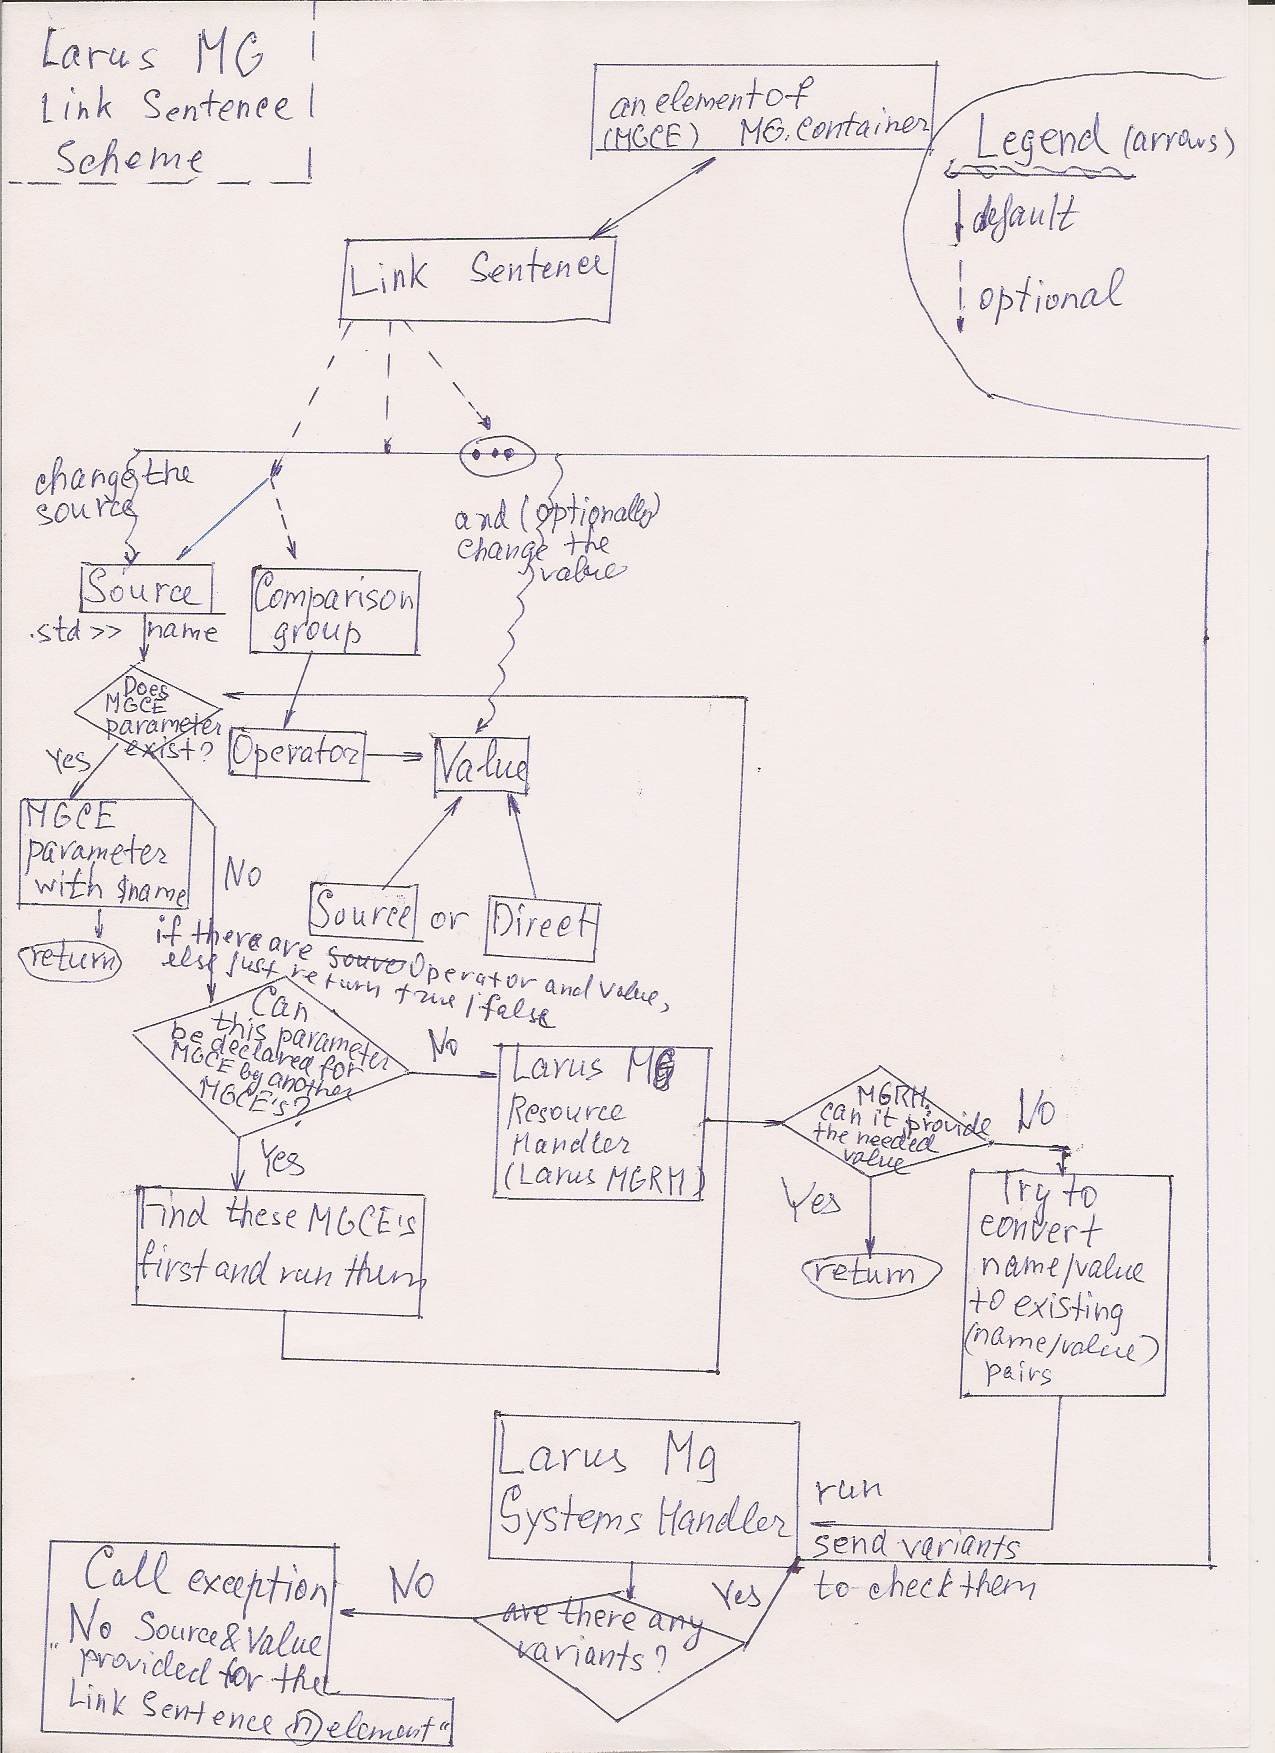 Larus MG
Link Sentence
Scheme
an element of
(MGCE) MG.Container
Legend (arrows)
default
optional
Link Sentence
...
change the
source
and (optionally)
change the
value
Source
.std >> name
Comparison
group
Does
MGCE
parameter
exist?
Yes
Operator
Value
MGCE
parameter
with $name
No
return
Source or Direct
if there are Operator and Value,
else just return true/false
Can
this parameter
be declared for
MGCE by another
MGCE's?
No
Yes
Larus MG
Resource
Handler
(Larus MGRM)
MGRM:
can it provide
the needed
value
No
Yes
return
Find these MGCE's
first and run them
Try to
convert
name/value
to existing
(name/value)
pairs
Larus Mg
Systems Handler
run
send variants
to check them
are there any
variants?
Yes
No
Call exception
"No Source&Value
provided for the
Link Sentence n element"